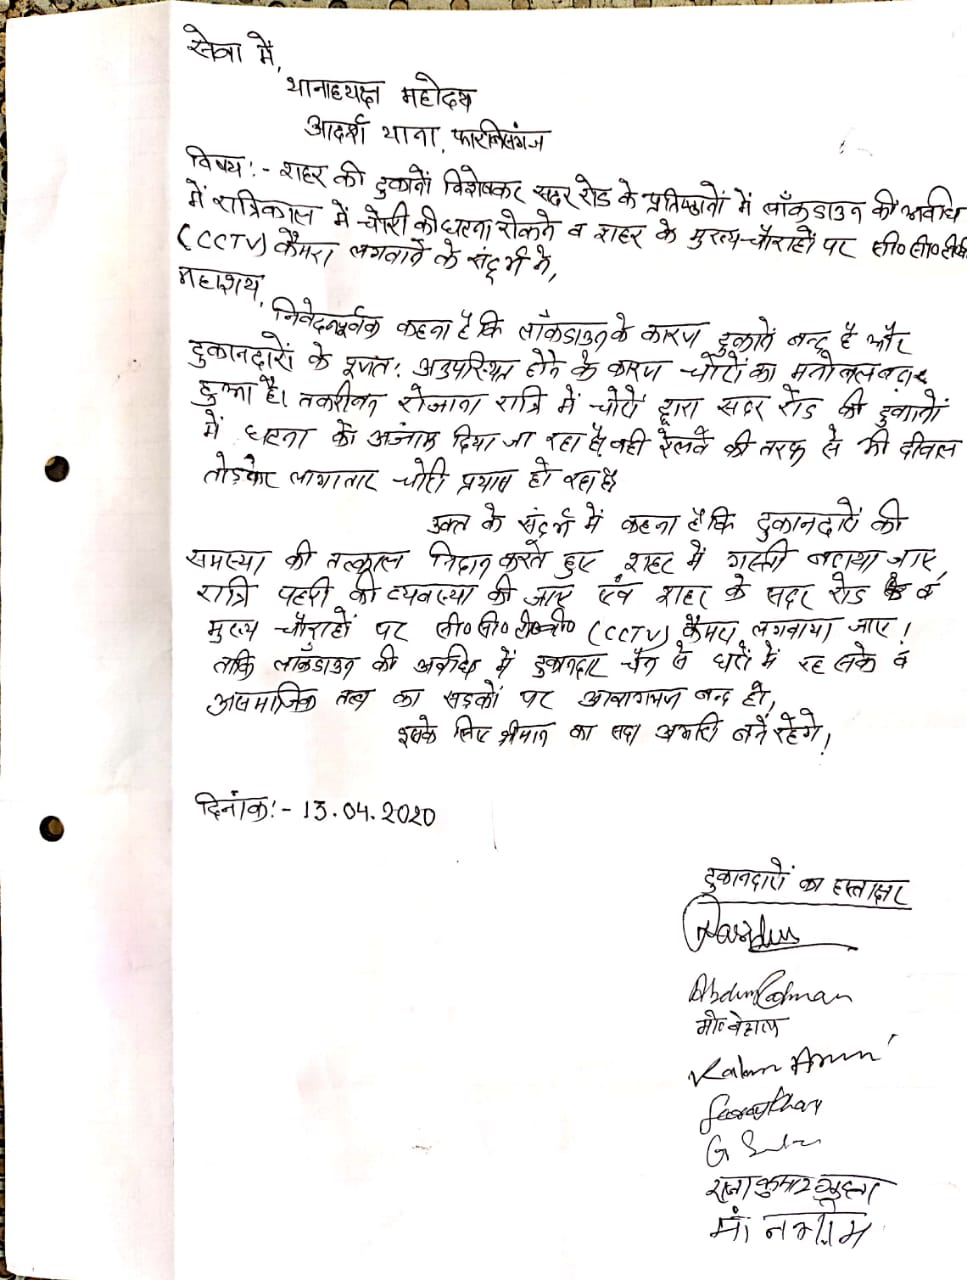 सेवा में,
थानाध्यक्ष महोदय
आदर्श थाना, फारबिसगंज
विषय :- शहर की दुकानों विशेषकर सदर रोड के प्रतिष्ठानों में लॉकडाउन की अवधि
में रात्रिकाल में चोरी की घटना रोकने व शहर के मुख्य-चौराहों पर सी० सी० टीवी
(CCTV) कैमरा लगवाने के संदर्भ में,
महाशय,
निवेदनपूर्वक कहना है कि लॉकडाउन के कारण दुकानें बन्द है और
दुकानदारों के पूर्णतः अनुपस्थित होने के कारण चोरों का मनोबल बढ़ा
हुआ है। तकरीबन रोजाना रात्रि में चोरों द्वारा सदर रोड की दुकानों
में घटना को अंजाम दिया जा रहा है, वही रेलवे की तरफ से भी दीवाल
तोड़कर लागातार चोरी प्रयास हो रहा है।
उक्त के संदर्भ में कहना है कि दुकानदारों की
समस्या की तत्काल निदान करते हुए शहर में गस्ती बढाया जाए,
रात्रि पहरी की व्यवस्था की जाए एवं शहर के सदर रोड के व
मुख्य चौराहों पर सी० सी० टी०वी० (CCTV) कैमरा लगवाया जाए।
ताकि लॉकडाउन की अवधि में दुकानदार चैन से घरों में रह सके व
असमाजिक तत्व का सड़कों पर आवागमन बन्द हो,
इसके लिए श्रीमान का सदा आभारी बनें रहेंगे।
दिनांक :- 13.04.2020
दुकानदारों का हस्ताक्षर
Abdur Rahman
मो०
Kalam
G
राजा कुमार गुप्ता
मो. नसीम